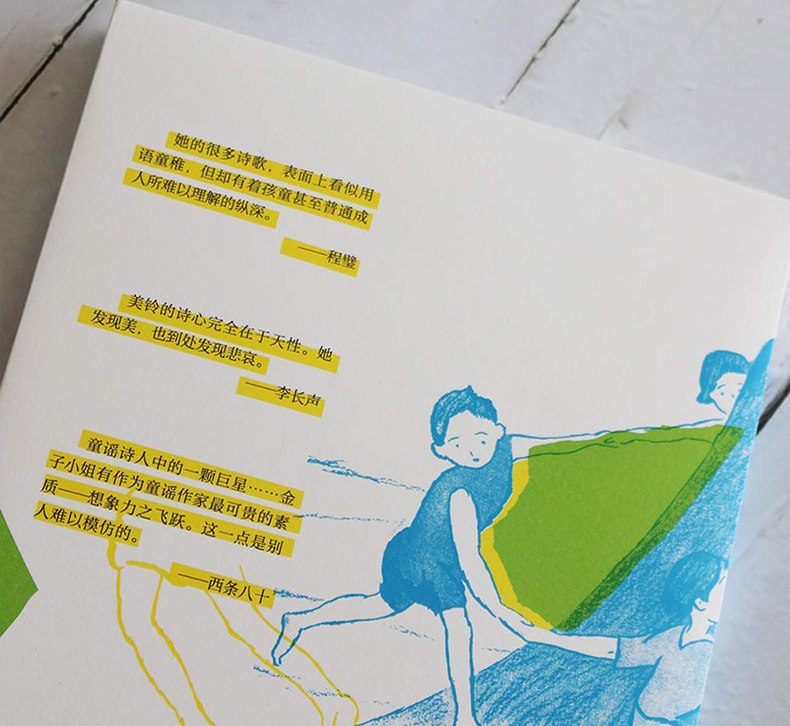 她的很多诗歌，表面上看似用
语童稚，但却有着孩童甚至普通成
人所难以理解的纵深。
——程璧
美铃的诗心完全在于天性。她
发现美，也到处发现悲哀。
——李长声
童谣诗人中的一颗巨星……金
子小姐有作为童谣作家最可贵的素
质——想象力之飞跃。这一点是别
人难以模仿的。
——西条八十